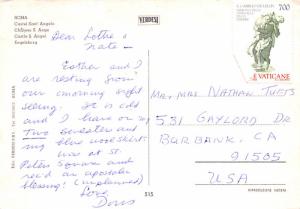 ROMA
Castel Sant'Angelo
Château S. Ange
Castle S. Angel
Engelsburg
VERDESI
700
VATICANE
Dear Lothe &
Nate -
Esther and I
are resting from
our morning sight
seeing. It is cold
and I have on my
two sweaters and
my blue wool skirt.
was at St.
Peters Square and
rec'd an apostolic
blessing! (unplanned)
Love
Doris
Mr. Mrs Nathan Tufts
531 Gaylord Dr
Burbank, CA
91505
USA
515
RIPRODUZIONE VIETATA